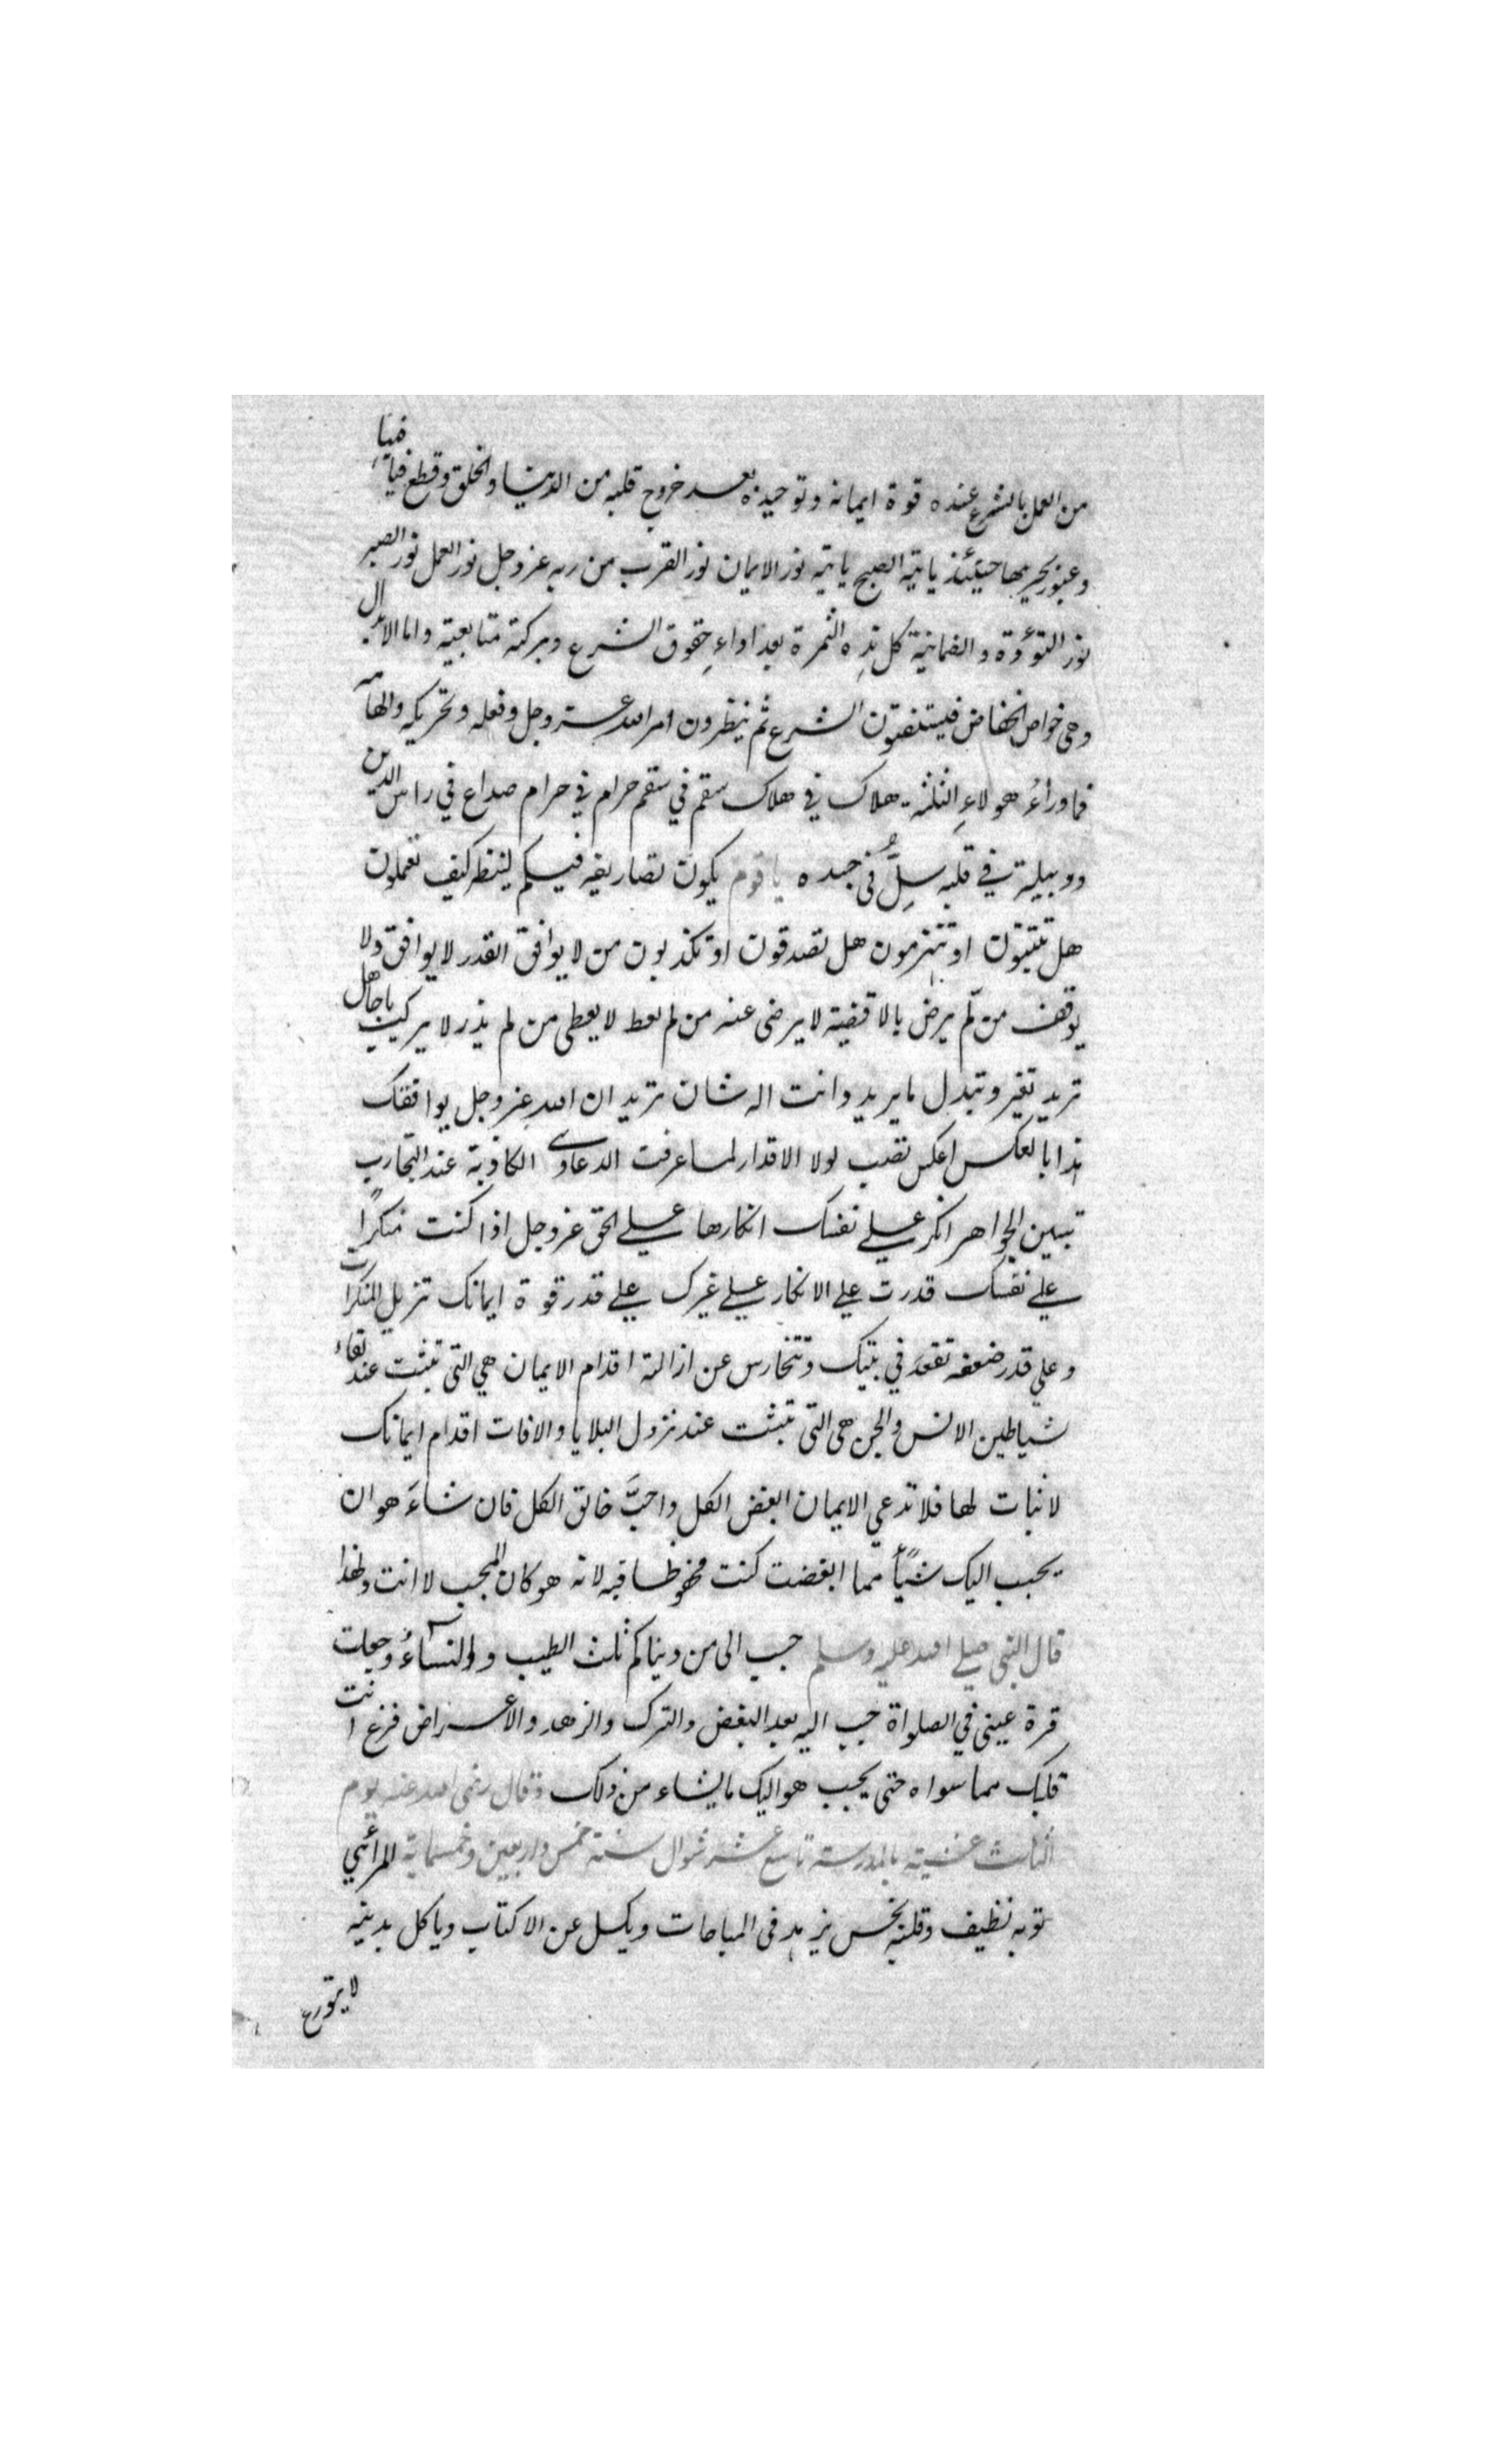 من العمل بالشرع عنده قوة ايمانه وتوحيده بعد خروج قلبه من الدنيا والخلق وقطع فيافيها
وعبور بحريها حينئذ ياتيه الصبح ياتيه نور الايمان نور القرب من ربه عز وجل نور العمل نور الصبر
نور التؤدة والطمانينة كل هذه الثمرة بعد اداء حقوق الشرع وبركة متابعته واما الابدال
وهي خواص الخواص فيستفتون الشرع ثم ينظرون امر الله عز وجل وفعله وتحريكه والهامه
فما وراء هولاء الثلثة هلاك في هلاك سقم في سقم حرام في حرام صداع في راس الدين
ودبيلة في قلبه سل في جسده يا قوم يكون تصاريفه فيكم لينظر كيف تعملون
هل تثبتون او تنهزمون هل تصدقون او تكذبون من لا يوافق القدر لا يوافق ولا
يوفق من لم يرض بالاقضية لا يرضى عنه من لم يعط لا يعطى من لم يذر لا يركب يا جاهل
تريد تغير وتبدل ما يريد وانت اله شان تريد ان الله عز وجل يوافقك
هذا بالعكس اعكس تصب لولا الاقدار لما عرفت الدعاوى الكاذبة عند التجارب
تبين الجواهر انكر على نفسك انكارها على الحق عز وجل اذا كنت منكراً
على نفسك قدرت على الانكار على غيرك على قدر قوة ايمانك تزيل المنكرات
وعلى قدر ضعفه تقعد في بيتك وتتخارس عن ازالته اقدام الايمان هي التي تثبت عند لقاء
شياطين الانس والجن هي التي تثبت عند نزول البلايا والافات اقدام ايمانك
لا ثبات لها فلا تدعي الايمان ابغض الكل واحبَّ خالق الكل فان شاء هو ان
يحبب اليك شيئاً مما ابغضت كنت محفوظا فيه لانه هو كان المحبب لا انت ولهذا
قال النبي صلى الله عليه وسلم حبب الى من دنياكم ثلث الطيب والنساء وجعلت
قرة عيني في الصلواة حبب اليه بعد البغض والترك والزهد والاعراض فرغ انت
قلبك مما سواه حتى يحبب هو اليك ما يشاء من ذلك وقال رضى الله عنه يوم
الثلث عشية بالمدرسة تاسع عشر شوال سنة خمس واربعين وخمسماية المرائي
ثوبه نظيف وقلبه نجس يزهد في المباحات ويكسل عن الاكتاب وياكل بدينه
لا يتورع